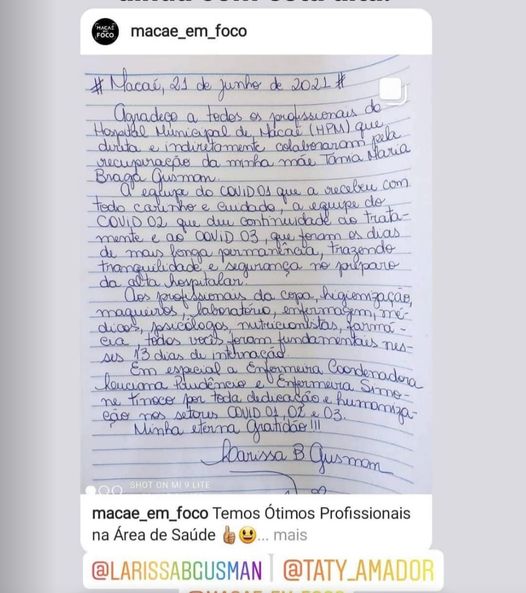 macae_em_foco
# Macaé, 21 de junho de 2021 #
Agradeço a todos os profissionais do
Hospital Municipal de Macaé (HPM) que
direta e indiretamente colaboraram pela
recuperação da minha mãe Tânia Maria
Braga Gusman.
A equipe do COVID 01 que a recebeu com
todo carinho e cuidado, a equipe do
COVID 02 que deu continuidade ao trata-
mento e ao COVID 03, que foram os dias
de mais longa permanência, trazendo
tranquilidade e segurança no preparo
da alta hospitalar.
Aos profissionais da copa, higienização,
maqueiros, laboratório, enfermagem, mé-
dicos, psicólogos, nutricionistas, farmá-
cia, todos vocês foram fundamentais nes-
ses 13 dias de internação.
Em especial a Enfermeira Coordenadora
Louciana Prudêncio e Enfermeira Simo-
ne Timoco por toda dedicação e humaniza-
ção nos setores COVID 01, 02 e 03.
Minha eterna Gratidão!!!
Larissa B Gusman
SHOT ON MI 9 LITE
macae_em_foco Temos Ótimos Profissionais
na Área de Saúde 👍😃... mais
@LARISSABGUSMAN @TATY_AMADOR